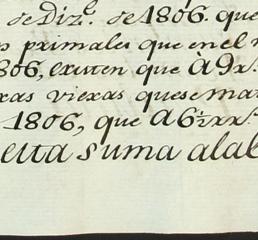 de Diz.e de 1806. que
primales que en el
806, existen que à 9 r.s
xas viexas que se mat
1806, que a 6½ xx.s
esta suma alab